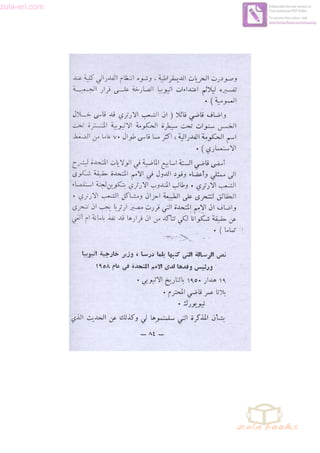 zula-eri.com
وصودرت الحريات الديمقراطية ، وشوه النظام الفدرالي كلية عند
تفسيره ليلائم اعتداءات اثيوبيا الصارخة على قرار الجمعية
العمومية ) •
واضاف قاضي قائلا ( ان الشعب الارتري قد قاسى خلال
الخمس سنوات تحت سيطرة الحكومة الاثيوبية المتسترة تحت
اسم الحكومة الفدرالية ، اكثر مما قاسى طوال ٦٠ عاما من الضغط
الاستعماري ) •
أمضى قاضي الستة اسابيع الماضية في الولايات المتحدة ليشرح
الى ممثلي وأعضاء وفود الدول في الامم المتحدة حقيقة شكوى
الشعب الارتري • وطالب المندوب الارتري بتكوين لجنة استقصاء
الحقائق لتتحرى على الطبيعة احزان ومشاكل الشعب الارتري •
واضاف ان الامم المتحدة التي قررت مصير ارتريا يجب ان تتحرى
عن حقيقة شكوانا لكي تتأكد من ان قرارها قد نفذ بامانة ام ألغي
تماما ) •
نص الرسالة التي كتبها بلما درسا ، وزير خارجية اثيوبيا
ورئيس وفدها لدى الامم المتحدة في عام ١٩٥٨
١٩ هدار ١٩٥٠ بالتاريخ الاثيوبي •
بلاتا عمر قاضي المحترم •
نيويورك •
بشأن المذكرة التي سلمتموها لي وكذلك عن الحديث الذي
— ٨٤ —
zula books